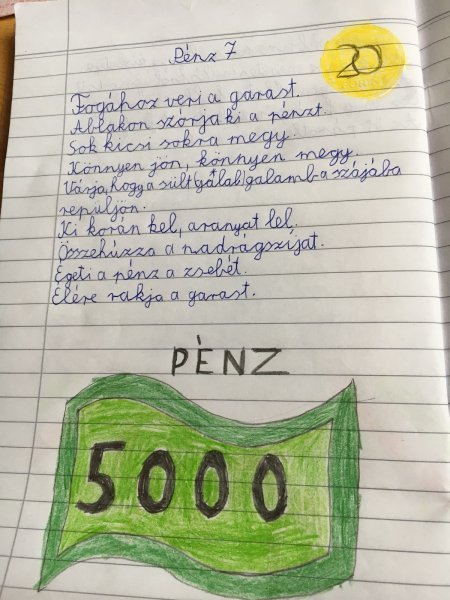 Pénz 7
20
Fogához veri a garast.
Ablakon szórja ki a pénzt.
Sok kicsi sokra megy.
Könnyen jön, könnyen megy.
Várja, hogy a sült (galab) galamb a szájába
repüljön.
Ki korán kel, aranyat lel.
Összehúzza a nadrágszíjat.
Égeti a pénz a zsebét.
Élére rakja a garast.
PÉNZ
5000